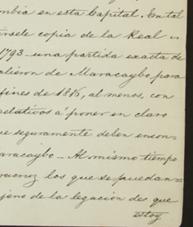 mbia en esta Capital. En tal
ursele copia de la Real
1793 - una partida exacta de
salieron de Maracaybo, para
fines de 1815, al menos, con
relativos á poner en claro
ue seguramente deben encon-
aracaybo - Al mismo tiempo
buenos los que se puedan
jeno de la legacion de que
estoy